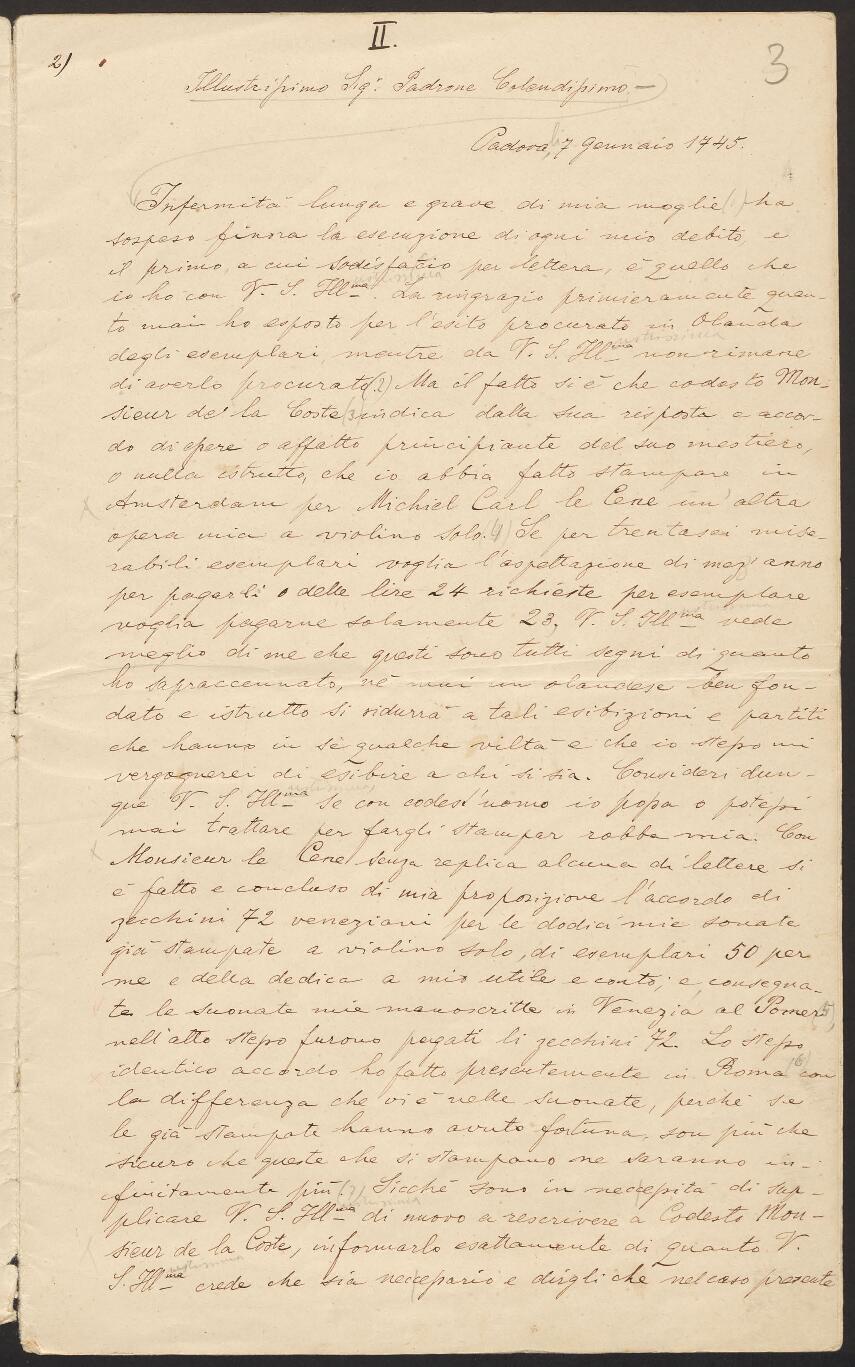 II.
2)
3
Illustrissimo Sigr. Padrone Colendissimo.—
Padova, li 7 Gennaio 1745.
Infermità lunga e grave di mia moglie (1) ha
sospeso finora la esecuzione di ogni mio debito, e
il primo, a cui sodisfaccio per lettera, è quello che
io ho con V. S. Illma. La ringrazio primieramente quan-
to mai ho esposto per l'esito procurato in Olanda
degli esemplari mentre da V. S. Illma non rimane
di averlo procurato (2) Ma il fatto si è che codesto Mon-
sieur de la Coste (3) indica dalla sua risposta e accor-
do di essere o affatto principiante del suo mestiero,
o nulla istrutto, che io abbia fatto stampare in
Amsterdam per Michiel Carl le Cene un'altra
opera mia a violino solo. (4) Se per trentasei mise-
rabili esemplari voglia l'aspettazione di mezz'anno
per pagarli o delle lire 24 richieste per esemplare
voglia pagarne solamente 23, V. S. Illma vede
meglio di me che questi sono tutti segni di quanto
ho sapraccennato, nè mai un olandese ben fon-
dato e istrutto si ridurrà a tali esibizioni e partiti
che hanno in sè qualche viltà e che io stesso mi
vergognerei di esibire a chi si sia. Consideri dun-
que V. S. Illma se con codest'uomo io possa o potessi
mai trattare per fargli stampar robba mia. Con
Monsieur le Cene senza replica alcuna di lettere si
è fatto e concluso di mia proposizione l'accordo di
zecchini 72 veneziani per le dodici mie sonate
già stampate a violino solo, di esemplari 50 per
me e della dedica a mio utile e conto; e, consegna-
te le suonate mie manoscritte in Venezia al Pomer (5),
nell'atto stesso furono pagati li zecchini 72. Lo stesso
identico accordo ho fatto presentemente in Roma (6) con
la differenza che vi è nelle suonate, perchè se
le già stampate hanno avuto fortuna, son più che
sicuro che queste che si stampano ne saranno in-
finitamente più (7). Sicchè sono in neccessità di sup-
plicare V. S. Illma di nuovo a rescrivere a Codesto Mon-
sieur de la Coste, informarlo esattamente di quanto V.
S. Illma crede che sia neccessario e dirgli che nel caso presente